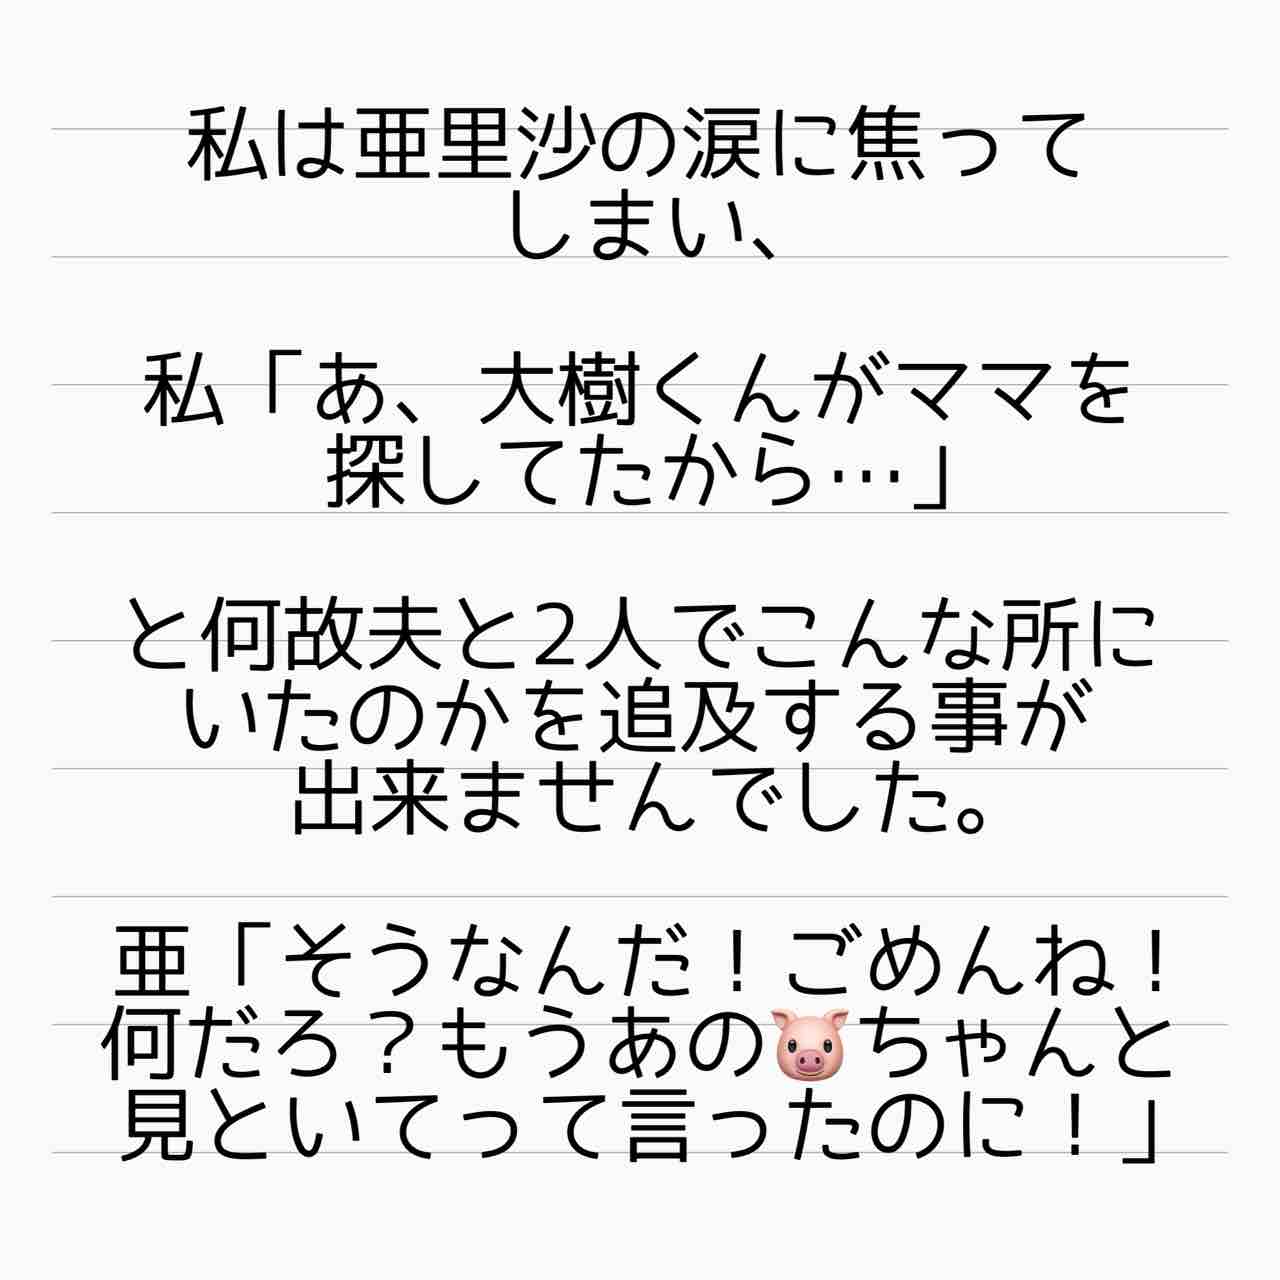 私は亜里沙の涙に焦って
しまい、
私「あ、大樹くんがママを
探してたから…」
と何故夫と2人でこんな所に
いたのかを追及する事が
出来ませんでした。
亜「そうなんだ！ごめんね！
何だろ？もうあの🐷ちゃんと
見といてって言ったのに！」